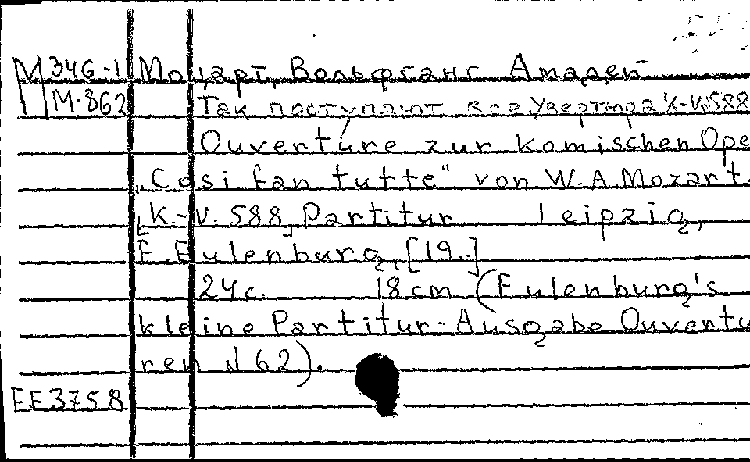 М346-1 Моцарт, Вольфганг Амадей
М-862 Так поступают все. Увертюра K.-V. 588
Ouvertüre zur komischen Ope
„Cosi fan tutte" von W.A. Mozart.
[K.-V. 588] Partitur Leipzig,
E. Eulenburg, [19..]
24 с. 18 cm (Eulenburg's
kleine Partitur-Ausgabe Ouvertu
ren N 62).
EE3758